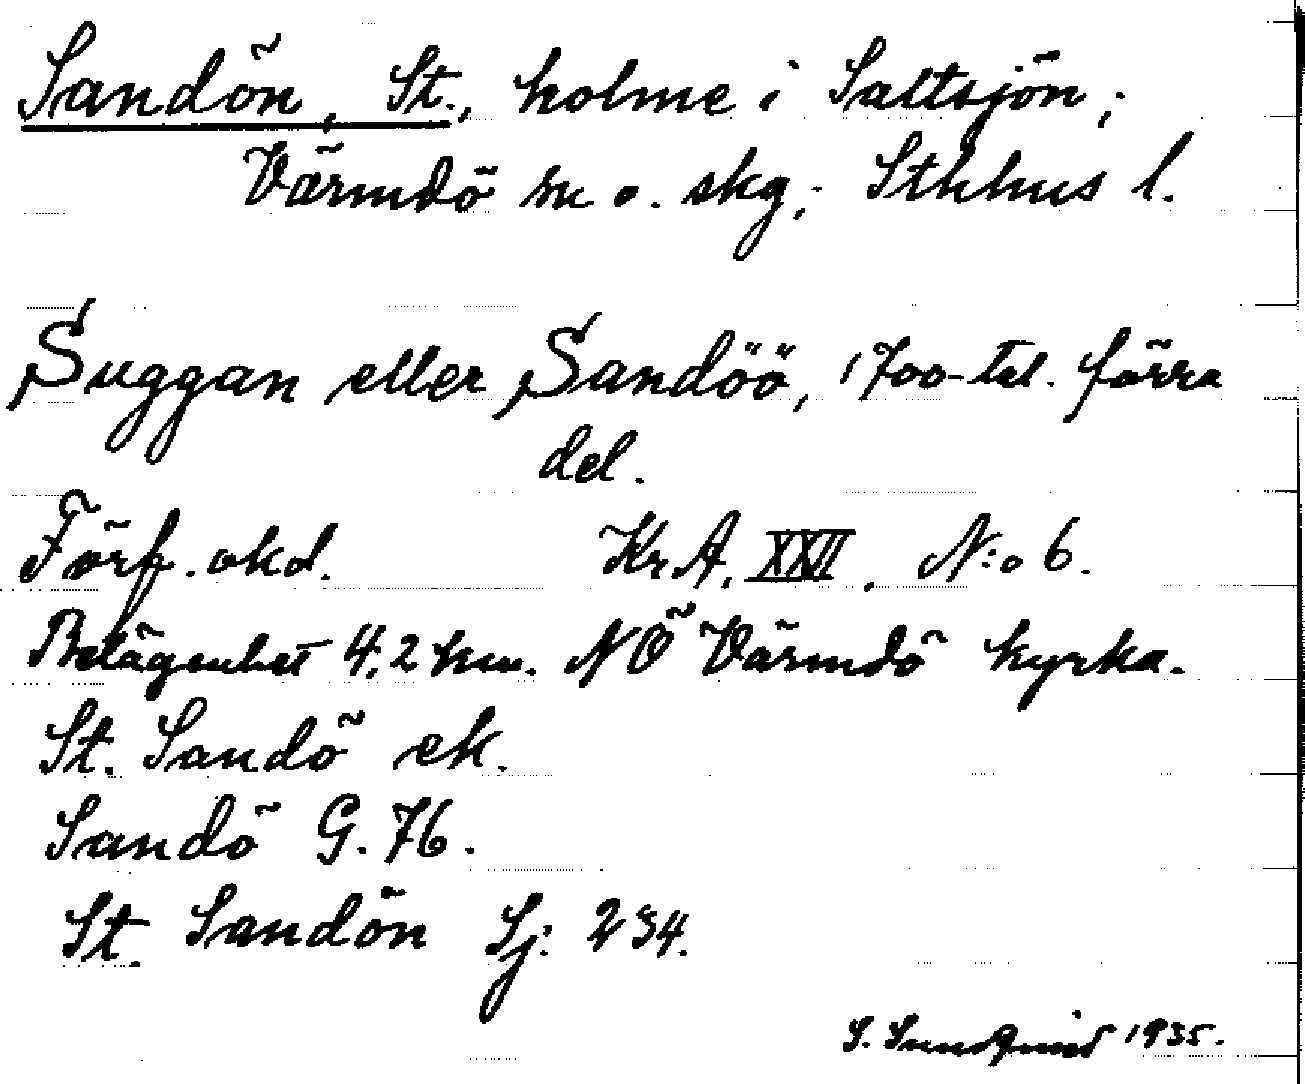 Sandön, St., holme i Saltsjön;
Värmdö sn o. skg; Sthlms l.
Suggan eller Sandöö, 1700-tal. förra
del.
Förf. okd. Kr.A. XXII. N:o 6.
Belägenhet 4,2 km. NÖ Värmdö kyrka.
St. Sandö ek.
Sandö G. 76.
St. Sandön Sj: 234.
S. Sundqvist 1935.